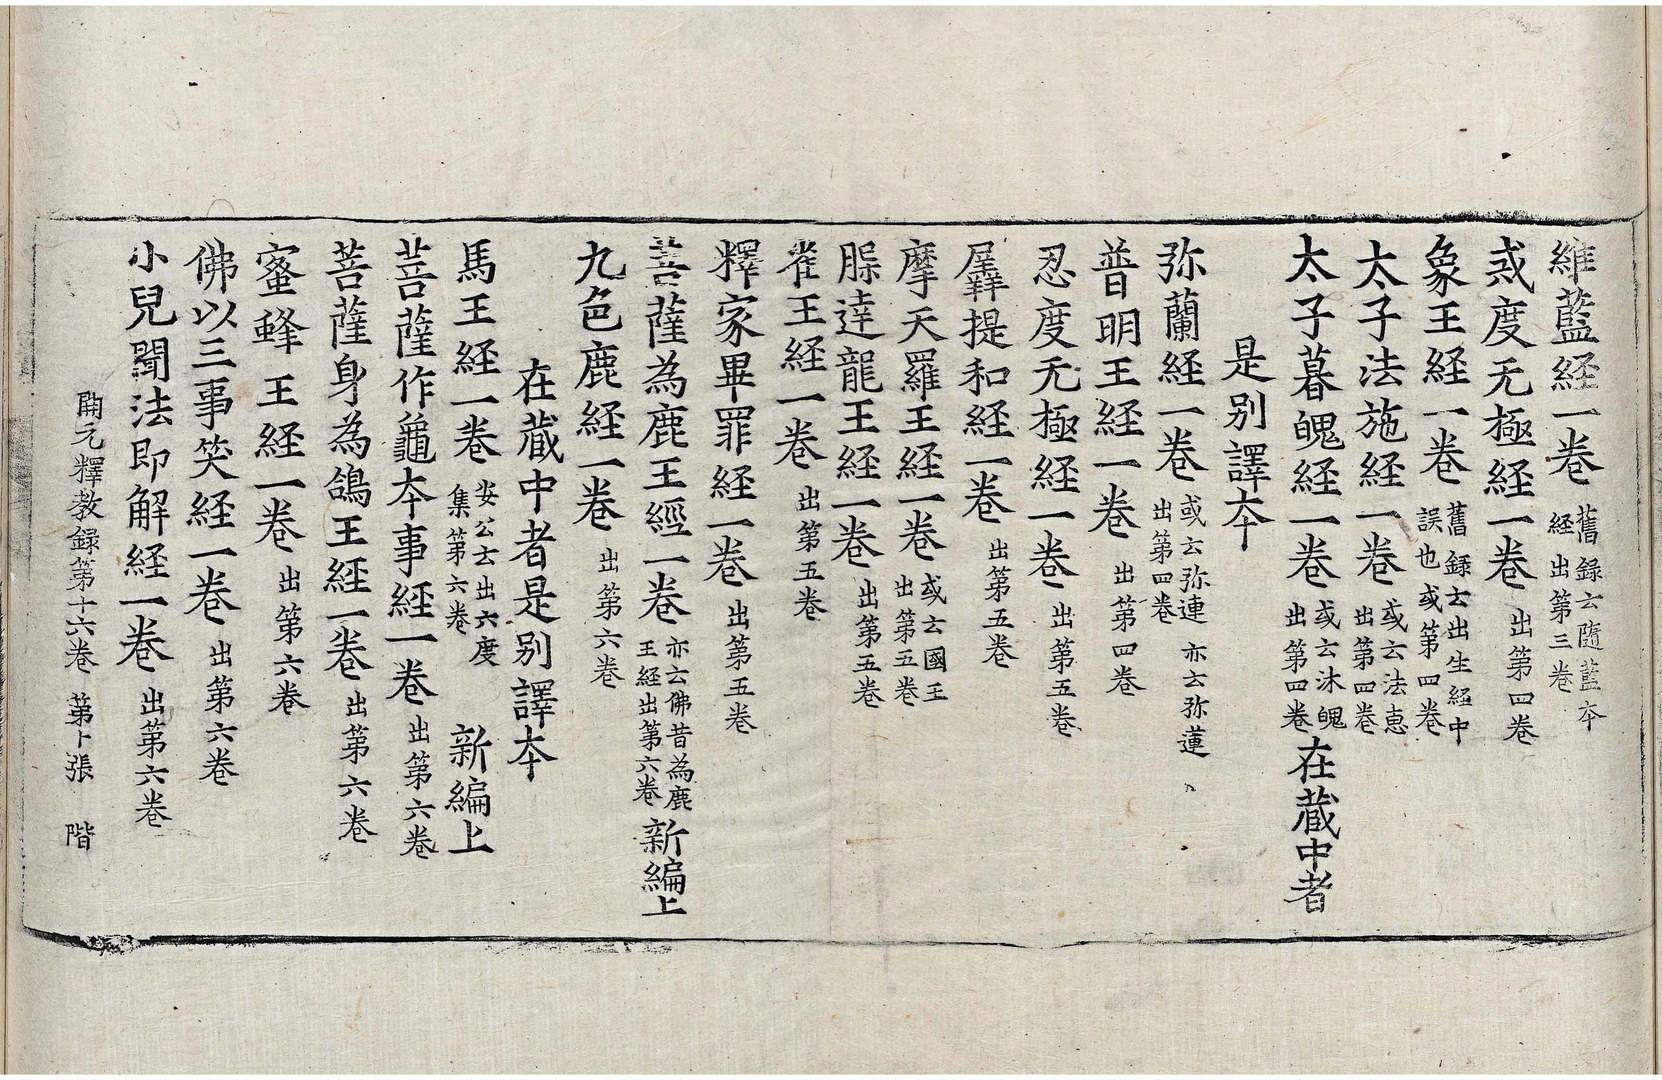 維藍経一卷 舊録云随藍本経出第三卷
戒度无極経一卷 出第四卷
象王経一卷 舊録云出生經中誤也或第四卷
太子法施経一卷 或云法惠出第四卷
太子暮魄経一卷 或云沐魄出第四卷 在蔵中者
是别譯本
弥蘭経一卷 或云弥連 亦云弥蓮出第四卷
普明王経一卷 出第四卷
忍度无極経一卷 出第五卷
羼提和経一卷 出第五卷
摩天羅王経一卷 或云國王出第五卷
龍王経一卷 出第五卷
雀王経一卷 出第五卷
釋家畢罪経一卷 出第五卷
菩薩為鹿王經一卷 亦云佛昔為鹿王経出第六卷 新編上
九色鹿経一卷 出第六卷
在蔵中者是别譯本
馬王経一卷 安公云出六度集第六卷 新編上
菩薩作龜本事経一卷 出第六卷
菩薩身為鴿王経一卷 出第六卷
蜜蜂王経一卷 出第六卷
佛以三事笑経一卷 出第六卷
小兒聞法即解経一卷 出第六卷
開元釋教録第十六卷 第卜張 階